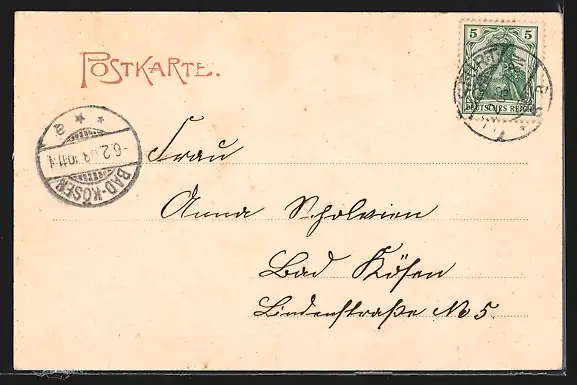 POSTKARTE.
5 5
DEUTSCHES REICH
a
-6.2.03.10-11V.
BAD-KÖSEN
Frau
Anna Scholvien
Bad Kösen
Lindenstraße No 5.